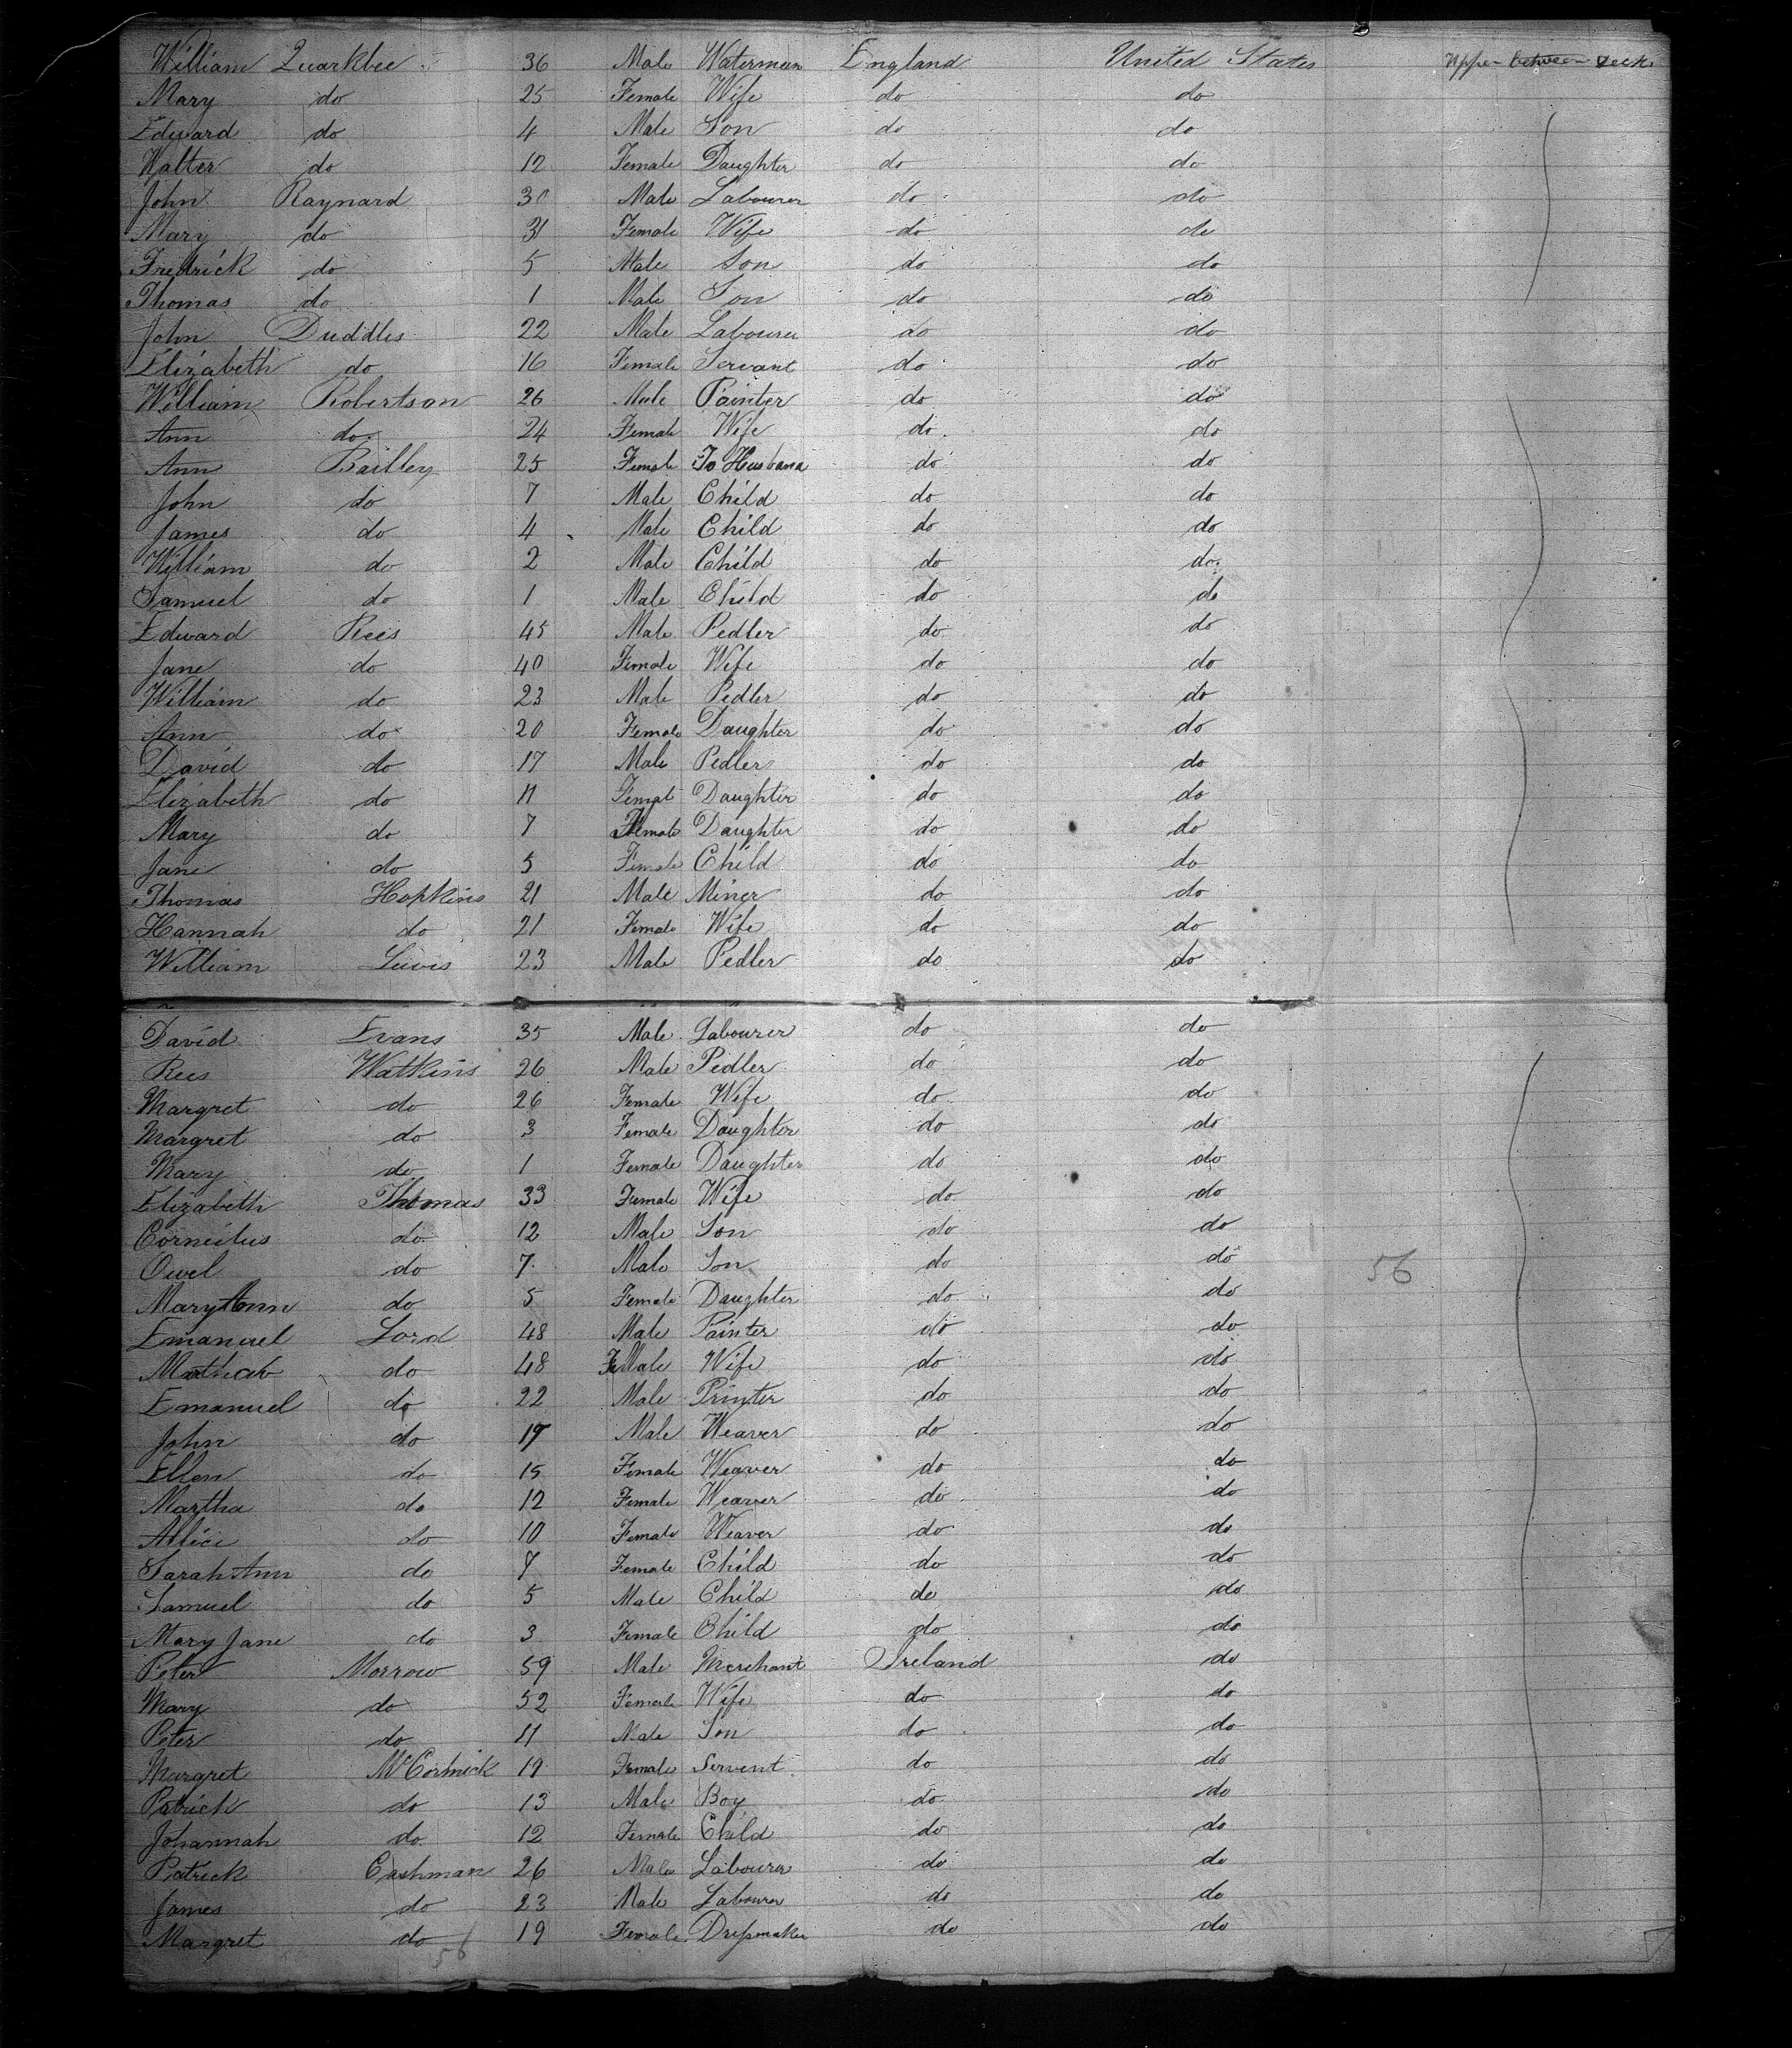 William Quarkbee 36 Male Waterman England United States Upper between deck
Mary do 25 Female Wife do do
Edward do 4 Male Son do do
Walter do 12 Female Daughter do do
John Raynard 30 Male Labourer do do
Mary do 31 Female Wife do do
Fredrick do 5 Male Son do do
Thomas do 1 Male Son do do
John Duddles 22 Male Labourer do do
Elizabeth do 16 Female Servant do do
William Robertson 26 Male Painter do do
Ann do 24 Female Wife do do
Ann Bailley 25 Female To Husband do do
John do 7 Male Child do do
James do 4 Male Child do do
William do 2 Male Child do do
Samuel do 1 Male Child do do
Edward Rees 45 Male Pedler do do
Jane do 40 Female Wife do do
William do 23 Male Pedler do do
Ann do 20 Female Daughter do do
David do 17 Male Pedler do do
Elizabeth do 11 Female Daughter do do
Mary do 7 Female Daughter do do
Jane do 5 Female Child do do
Thomas Hopkins 21 Male Miner do do
Hannah do 21 Female Wife do do
William Lewis 23 Male Pedler do do
David Evans 35 Male Labourer do do
Rees Watkins 26 Male Pedler do do
Margret do 26 Female Wife do do
Margret do 3 Female Daughter do do
Mary do 1 Female Daughter do do
Elizabeth Thomas 33 Female Wife do do
Corneilus do 12 Male Son do do
Owel do 7 Male Son do do 56
Mary Ann do 5 Female Daughter do do
Emanuel Lord 48 Male Painter do do
do 48 FeMale Wife do do
Emanuel do 22 Male Printer do do
John do 19 Male Weaver do do
Ellen do 15 Female Weaver do do
Martha do 12 Female Weaver do do
Allice do 10 Female Weaver do do
Sarah Ann do 7 Female Child do do
Samuel do 5 Male Child do do
Mary Jane do 3 Female Child do do
Peter Morrow 59 Male Merchant Ireland do
Mary do 52 Female Wife do do
Peter do 11 Male Son do do
Margret McCormick 19 Female Servent do do
Patrick do 13 Male Boy do do
Johannah do 12 Female Child do do
Patrick Cashman 26 Male Labourer do do
James do 23 Male Labourer do do
Margret do 19 Female Dressmaker do do
56